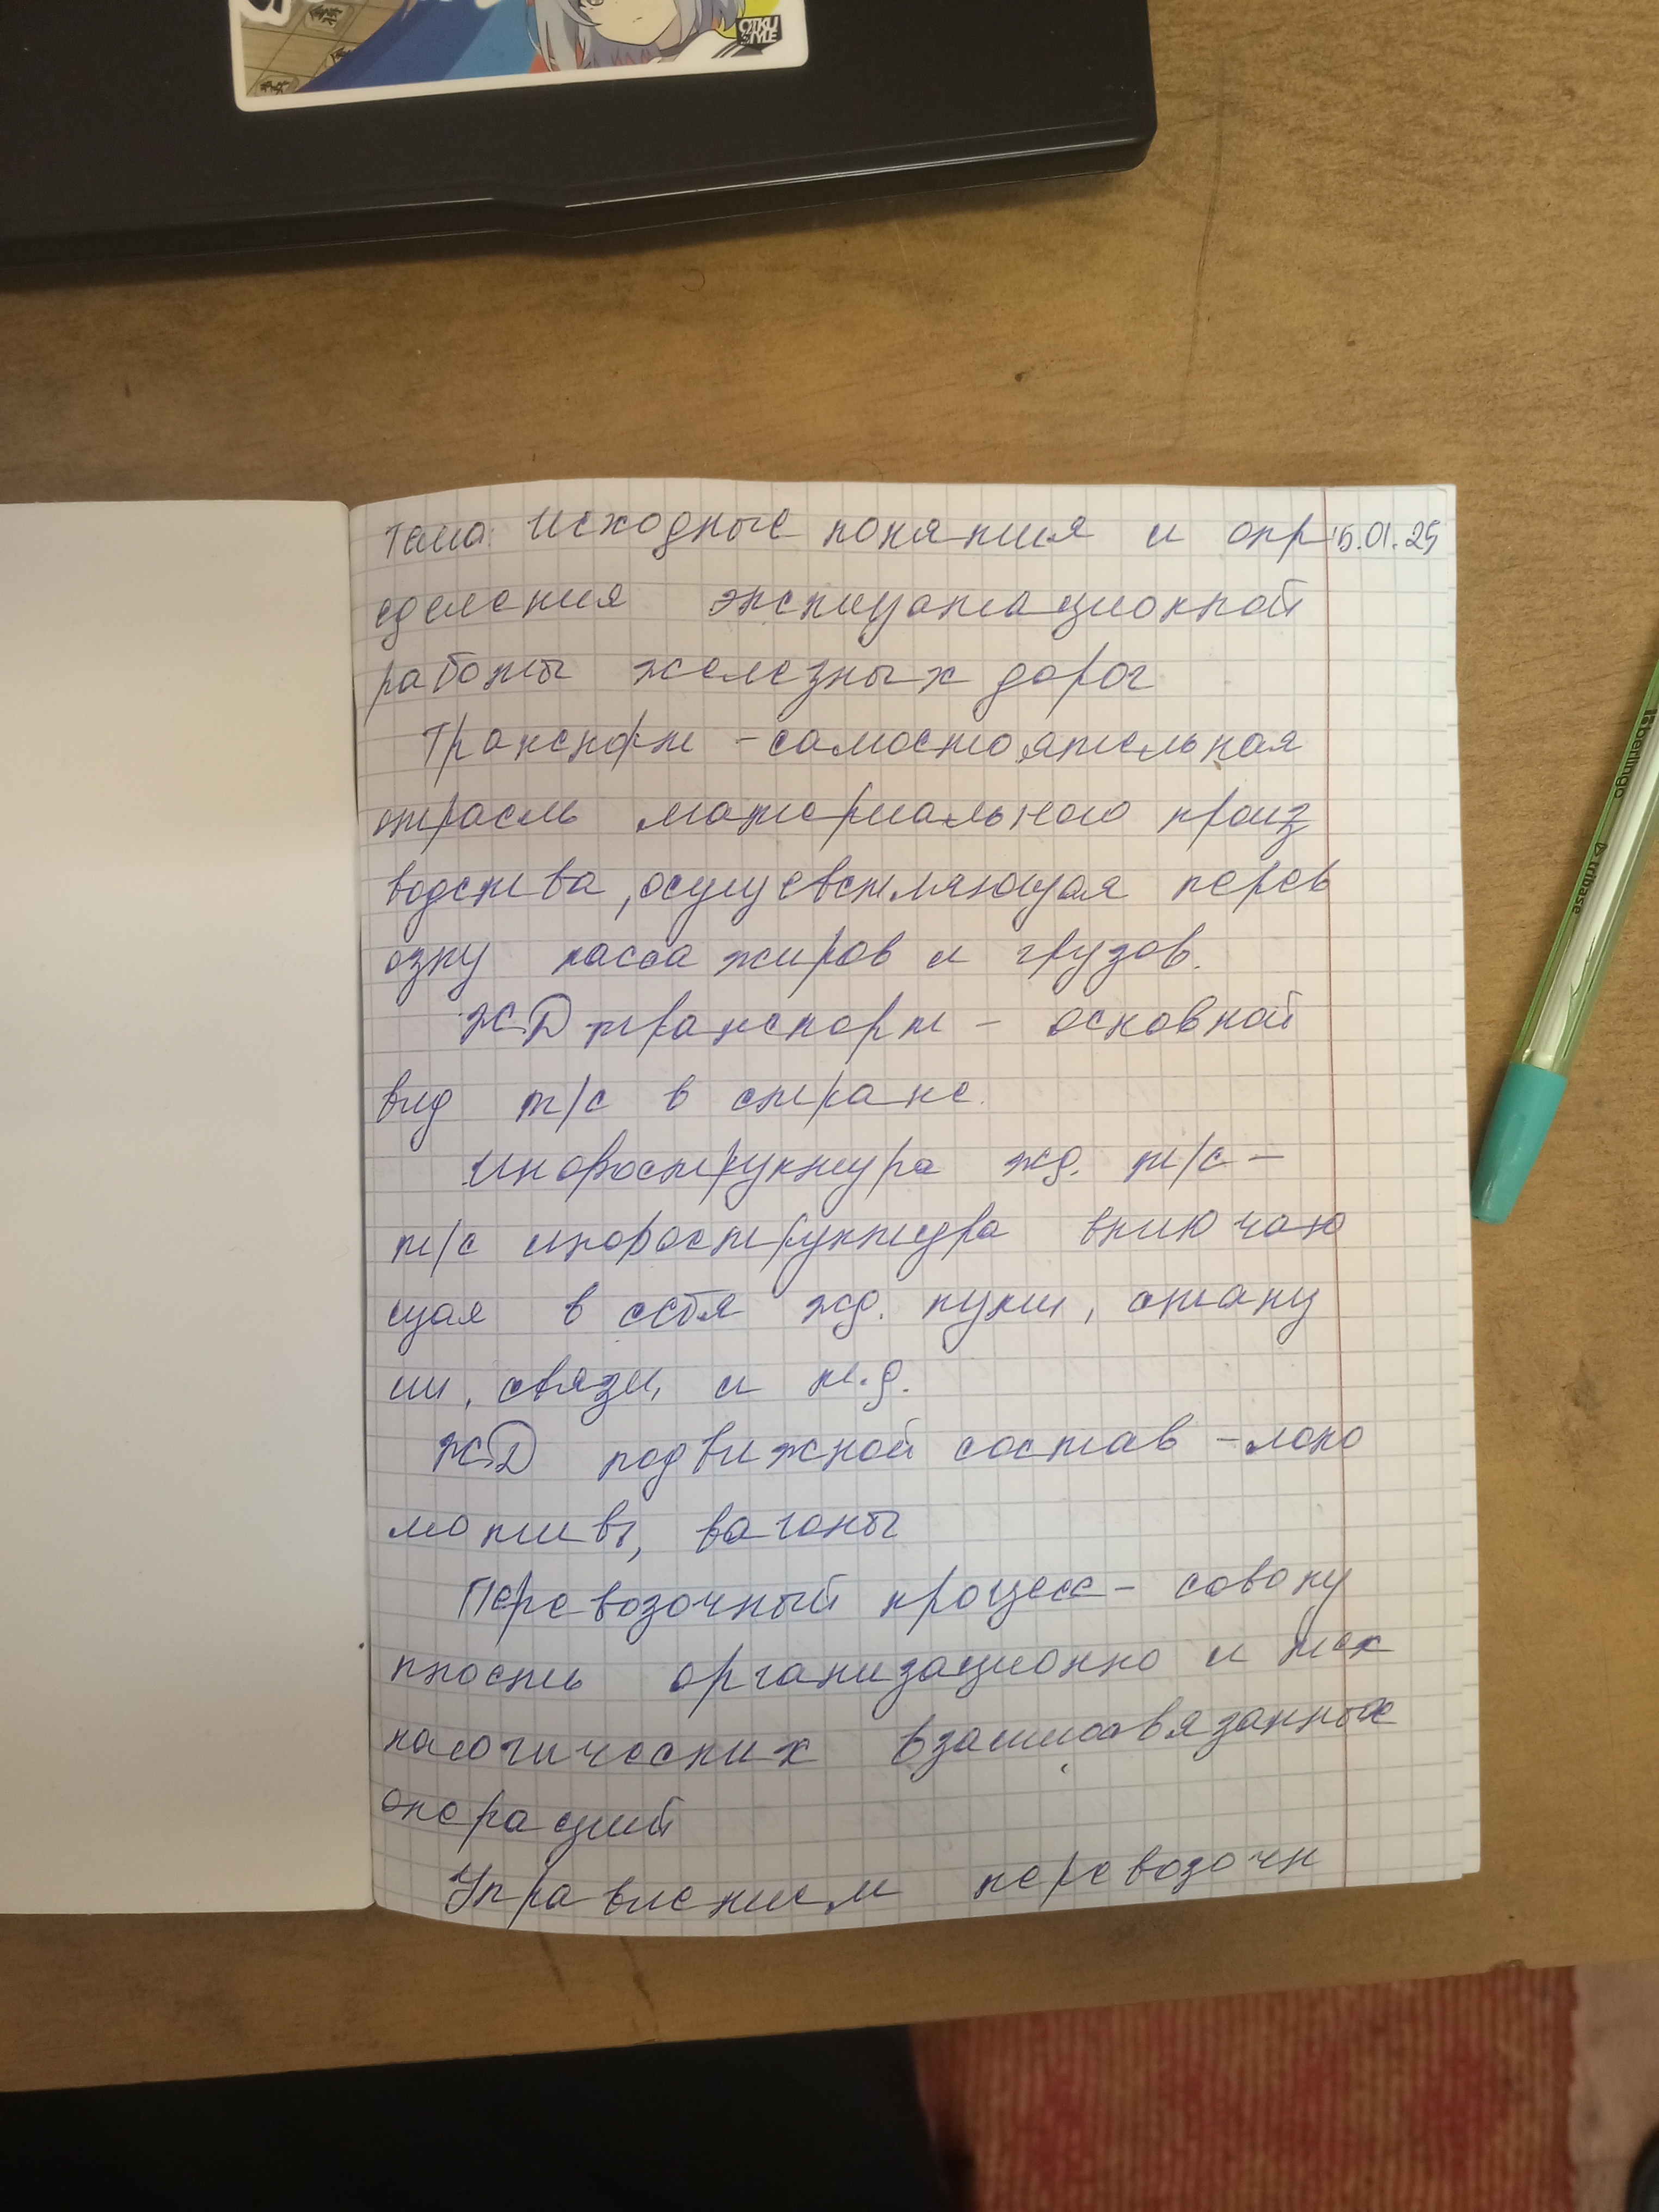 OTKU
STYLE
Тема: Исходные понятия и опр 15.01.25
еделения эксплуатационной
работы железных дорог
Транспорт - самостоятельная
отрасль материального произ
водства, осущевстляющая перев
озку пассажиров и грузов.
ЖД транспорт - основной
вид т/с в стране.
Инфраструктура жд. т/с -
т/с инфраструктура включаю
щая в себя жд. пути, станц
ии, связи, и т.д.
ЖД подвижной состав - локо
мотивы, вагоны
Перевозочный процесс - совоку
пность организационно и тех
нологических взаимосвязанных
операций
Управлением перевозочн
berlingo
tribase